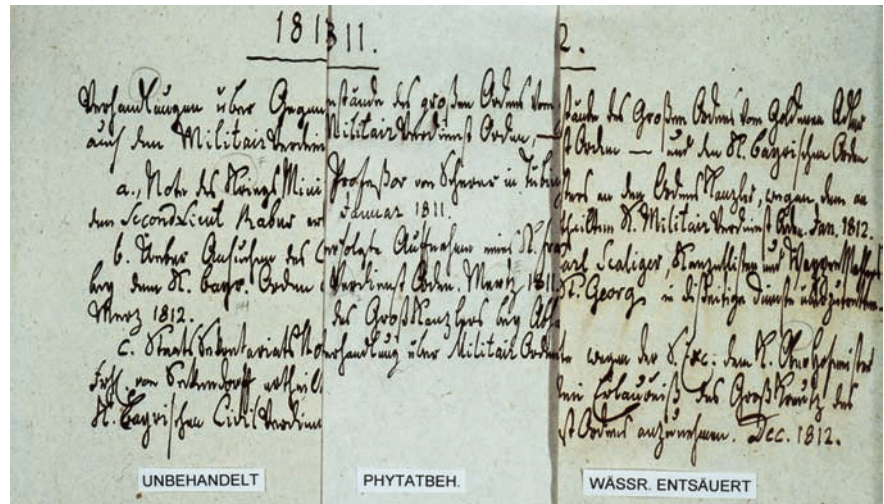 181
Verhandlungen über Gegen
auch dem Militair Verdien
a., Note des Kriegs Mini
dem SecondLieut Raber er
b. Ueber Ansuchen des
bey dem K. bayr. Orden
Merz 1812.
c. Staats Sekretariats No
von Seckendorff ertheil
K. bayrischen Civil Verdien
UNBEHANDELT
811.
nstände des großen Ordens vom
Militair Verdienst Orden, —
Professor von Scherer in Tübin
Januar 1811.
erfolgte Aufnahme eines K.
Verdienst Orden. Mertz 1811.
des GroßKanzlers bey
erhandlung über Militair Ordens
PHYTATBEH.
2.
stände des Großen Ordens vom Goldenen Adler
st Orden — und den K. bayrischen Orden
sters an den Ordens Kanzler, wegen dem an
theilten K. Militair Verdienst Orden. Jan. 1812.
arl Scaliger, Kanzellisten und WappenMahlers
St. Georg, in dißeitige Dienste überzutretten.
te wegen der S. Exc: dem K. OberHofmeister
Erlaubniß das GroßKreutz des
st Ordens anzunehmen. Dec. 1812.
WÄSSR. ENTSÄUERT